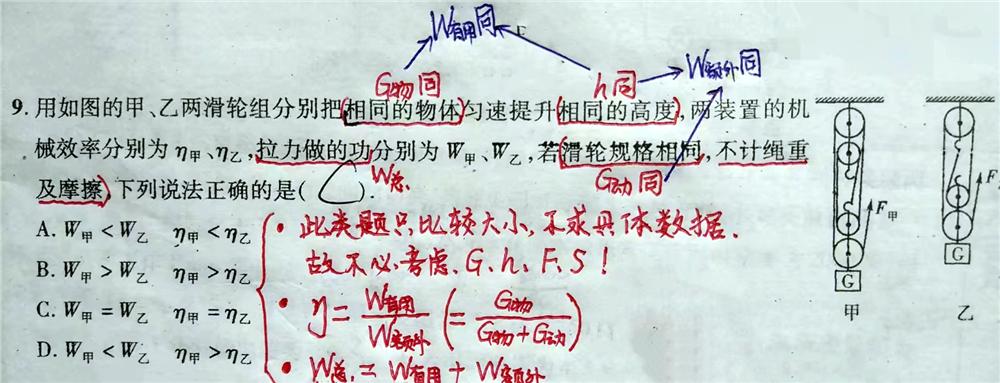 W有用同
G物同 h同 W额外同
9.用如图的甲、乙两滑轮组分别把相同的物体匀速提升相同的高度,两装置的机
械效率分别为η甲、η乙,拉力做的功分别为W甲、W乙,若滑轮规格相同,不计绳重
W总 G动同
及摩擦,下列说法正确的是( ).
A. W甲<W乙 η甲<η乙
B. W甲>W乙 η甲>η乙
C. W甲=W乙 η甲=η乙
D. W甲<W乙 η甲>η乙
• 此类题只比较大小,不求具体数据.
故不必考虑、G、h、F、S!
• η=W有用/W额外(=G物/(G物+G动))
• W总=W有用+W额外
F甲
G
甲
F
G
乙